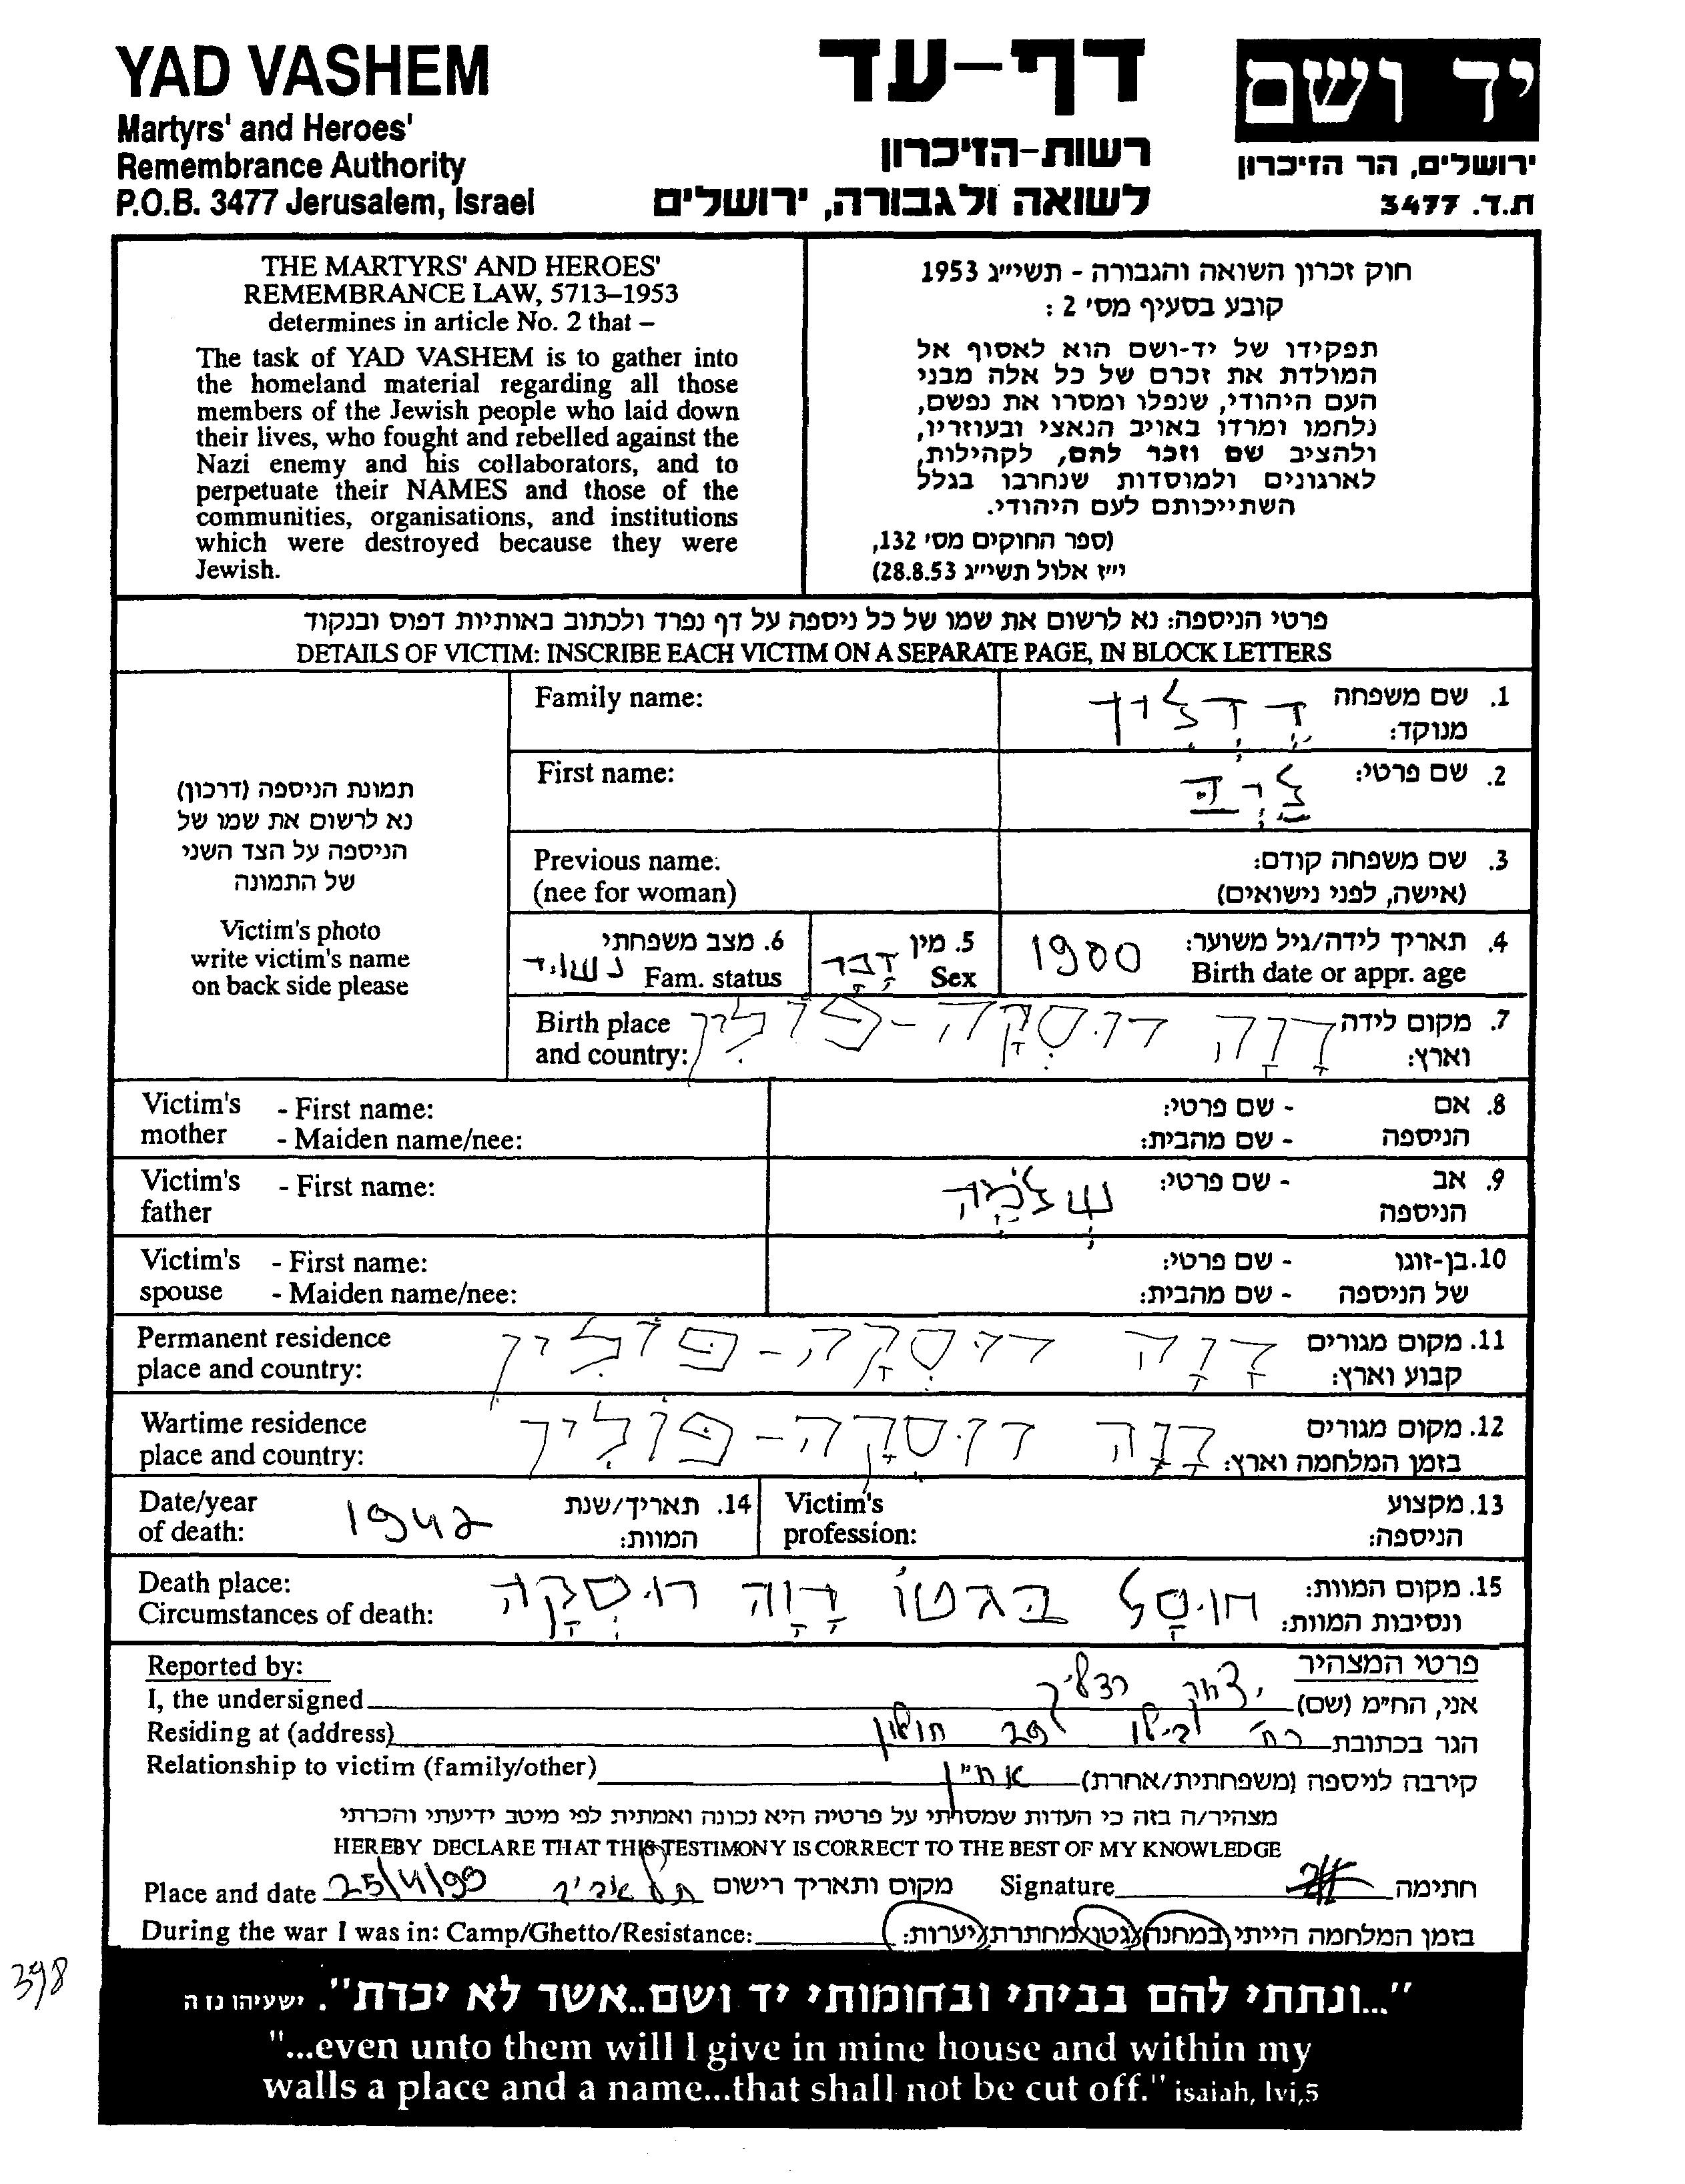 YAD VASHEM
Martyrs' and Heroes'
Remembrance Authority
P.O.B. 3477 Jerusalem, Israel
דף-עד
רשות-הזיכרון
לשואה ולגבורה, ירושלים
יד ושם
ירושלים, הר הזיכרון
ת.ד. 3477
THE MARTYRS' AND HEROES'
REMEMBRANCE LAW, 5713–1953
determines in article No. 2 that –
The task of YAD VASHEM is to gather into
the homeland material regarding all those
members of the Jewish people who laid down
their lives, who fought and rebelled against the
Nazi enemy and his collaborators, and to
perpetuate their NAMES and those of the
communities, organisations, and institutions
which were destroyed because they were
Jewish.
חוק זכרון השואה והגבורה - תשי״ג 1953
קובע בסעיף מס' 2 :
תפקידו של יד-ושם הוא לאסוף אל
המולדת את זכרם של כל אלה מבני
העם היהודי, שנפלו ומסרו את נפשם,
נלחמו ומרדו באויב הנאצי ובעוזריו,
ולהציב שם וזכר להם, לקהילות,
לארגונים ולמוסדות שנחרבו בגלל
השתייכותם לעם היהודי.
(ספר החוקים מס' 132,
י״ז אלול תשי״ג 28.8.53)
פרטי הניספה: נא לרשום את שמו של כל ניספה על דף נפרד ולכתוב באותיות דפוס ובנקוד
DETAILS OF VICTIM: INSCRIBE EACH VICTIM ON A SEPARATE PAGE, IN BLOCK LETTERS
תמונת הניספה (דרכון)
נא לרשום את שמו של
הניספה על הצד השני
של התמונה
Victim's photo
write victim's name
on back side please
Family name:
1. שם משפחה
מנוקד:
First name:
2. שם פרטי:
Previous name:
(nee for woman)
3. שם משפחה קודם:
(אישה, לפני נישואים)
4. תאריך לידה/גיל משוער: 1900
Birth date or appr. age
5. מין זכר
Sex
6. מצב משפחתי נשוי
Fam. status
Birth place
and country:
7. מקום לידה
וארץ: פולין
Victim's - First name:
mother - Maiden name/nee:
8. אם - שם פרטי:
הניספה - שם מהבית:
Victim's - First name:
father
9. אב - שם פרטי: שלמה
הניספה
Victim's - First name:
spouse - Maiden name/nee:
10. בן-זוגו - שם פרטי:
של הניספה - שם מהבית:
Permanent residence
place and country:
11. מקום מגורים
קבוע וארץ: פולין
Wartime residence
place and country:
12. מקום מגורים
בזמן המלחמה וארץ: פולין
Date/year
of death:
14. תאריך/שנת
המוות: 1942
Victim's
profession:
13. מקצוע
הניספה:
Death place:
Circumstances of death:
15. מקום המוות:
ונסיבות המוות: חוסל בגטו
Reported by:
פרטי המצהיר
I, the undersigned
אני, הח״מ (שם)
Residing at (address)
הגר בכתובת
Relationship to victim (family/other)
קירבה לניספה (משפחתית/אחרת) אחיין
מצהיר/ה בזה כי העדות שמסרתי על פרטיה היא נכונה ואמתית לפי מיטב ידיעתי והכרתי
HEREBY DECLARE THAT THIS TESTIMONY IS CORRECT TO THE BEST OF MY KNOWLEDGE
Place and date 25/4/99 תל אביב מקום ותאריך רישום Signature חתימה
During the war I was in: Camp/Ghetto/Resistance:
בזמן המלחמה הייתי במחנה/גטו/מחתרת/יערות:
398
"...ונתתי להם בביתי ובחומותי יד ושם..אשר לא יכרת". ישעיהו נז ה
"...even unto them will I give in mine house and within my
walls a place and a name...that shall not be cut off." isaiah, lvi,5